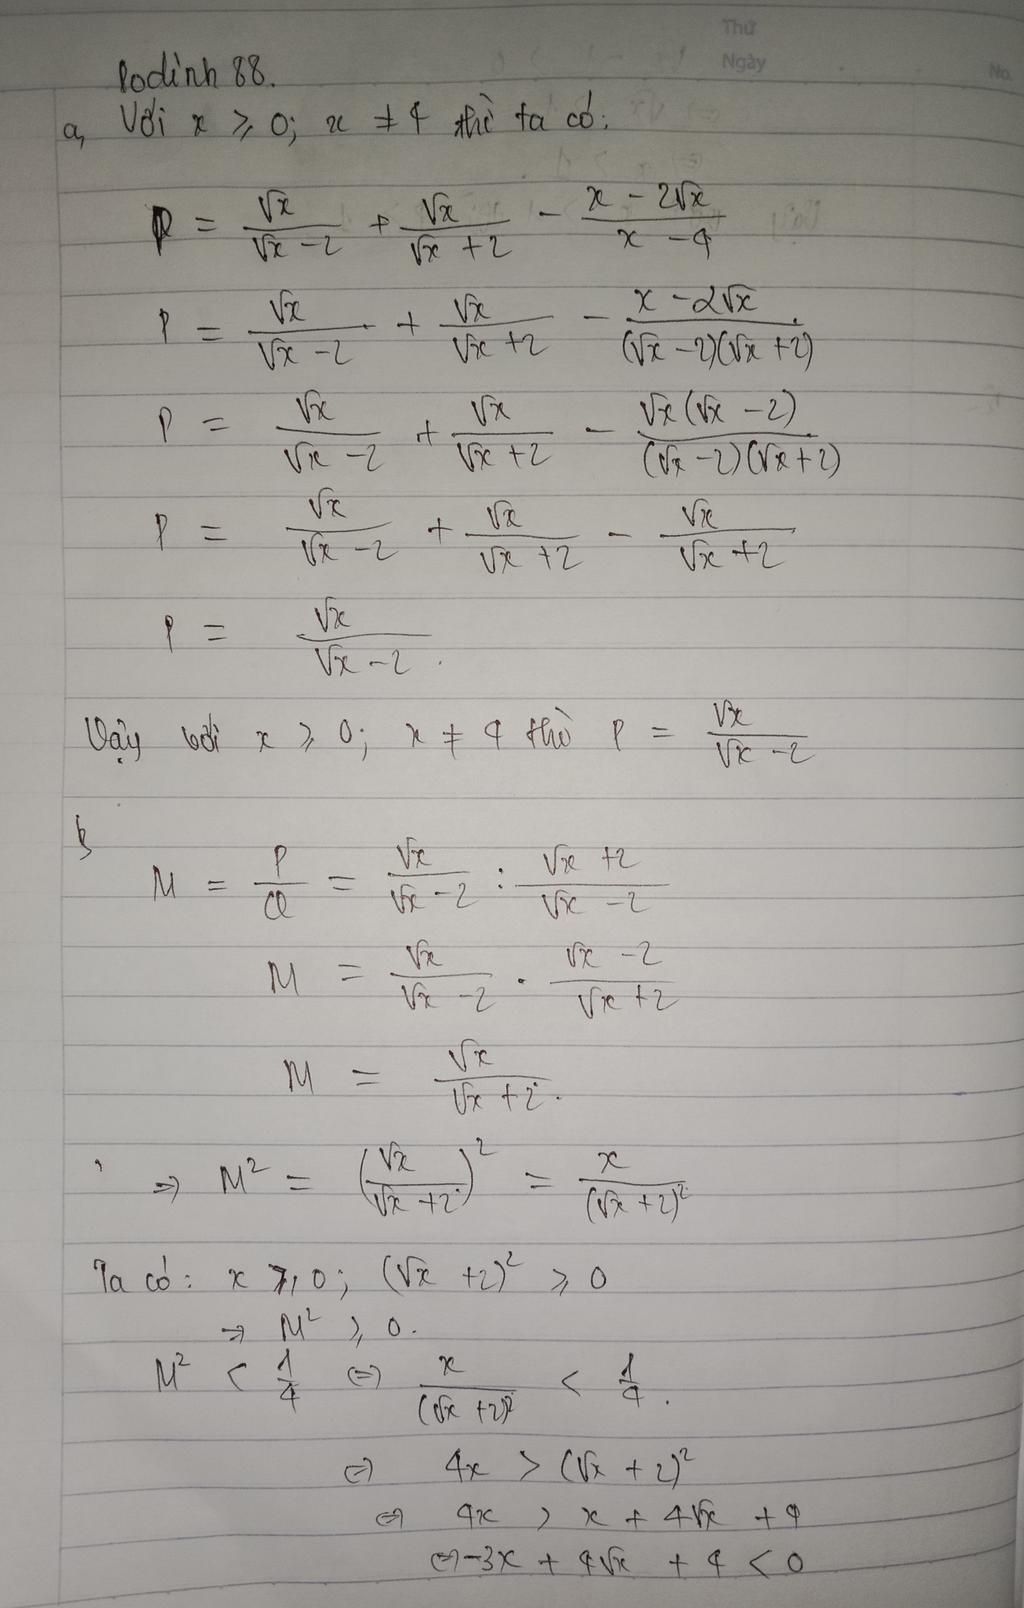 Thứ
Ngày
No.
Podình 88.
a, Với x ≥ 0; x ≠ 4 thì ta có:
P = √x/(√x - 2) + √x/(√x + 2) - (x - 2√x)/(x - 4)
P = √x/(√x - 2) + √x/(√x + 2) - (x - 2√x)/((√x - 2)(√x + 2))
P = √x/(√x - 2) + √x/(√x + 2) - √x(√x - 2)/((√x - 2)(√x + 2))
P = √x/(√x - 2) + √x/(√x + 2) - √x/(√x + 2)
P = √x/(√x - 2).
Vậy với x ≥ 0; x ≠ 4 thì P = √x/(√x - 2)
b,
M = P/Q = √x/(√x - 2) : (√x + 2)/(√x - 2)
M = √x/(√x - 2) . (√x - 2)/(√x + 2)
M = √x/(√x + 2).
⇒ M² = (√x/(√x + 2))² = x/(√x + 2)²
Ta có: x ≥ 0; (√x + 2)² ≥ 0
⇒ M² ≥ 0.
M² < 1/4 ⇔ x/(√x + 2)² < 1/4.
⇔ 4x > (√x + 2)²
⇔ 4x > x + 4√x + 4
⇔ -3x + 4√x + 4 < 0